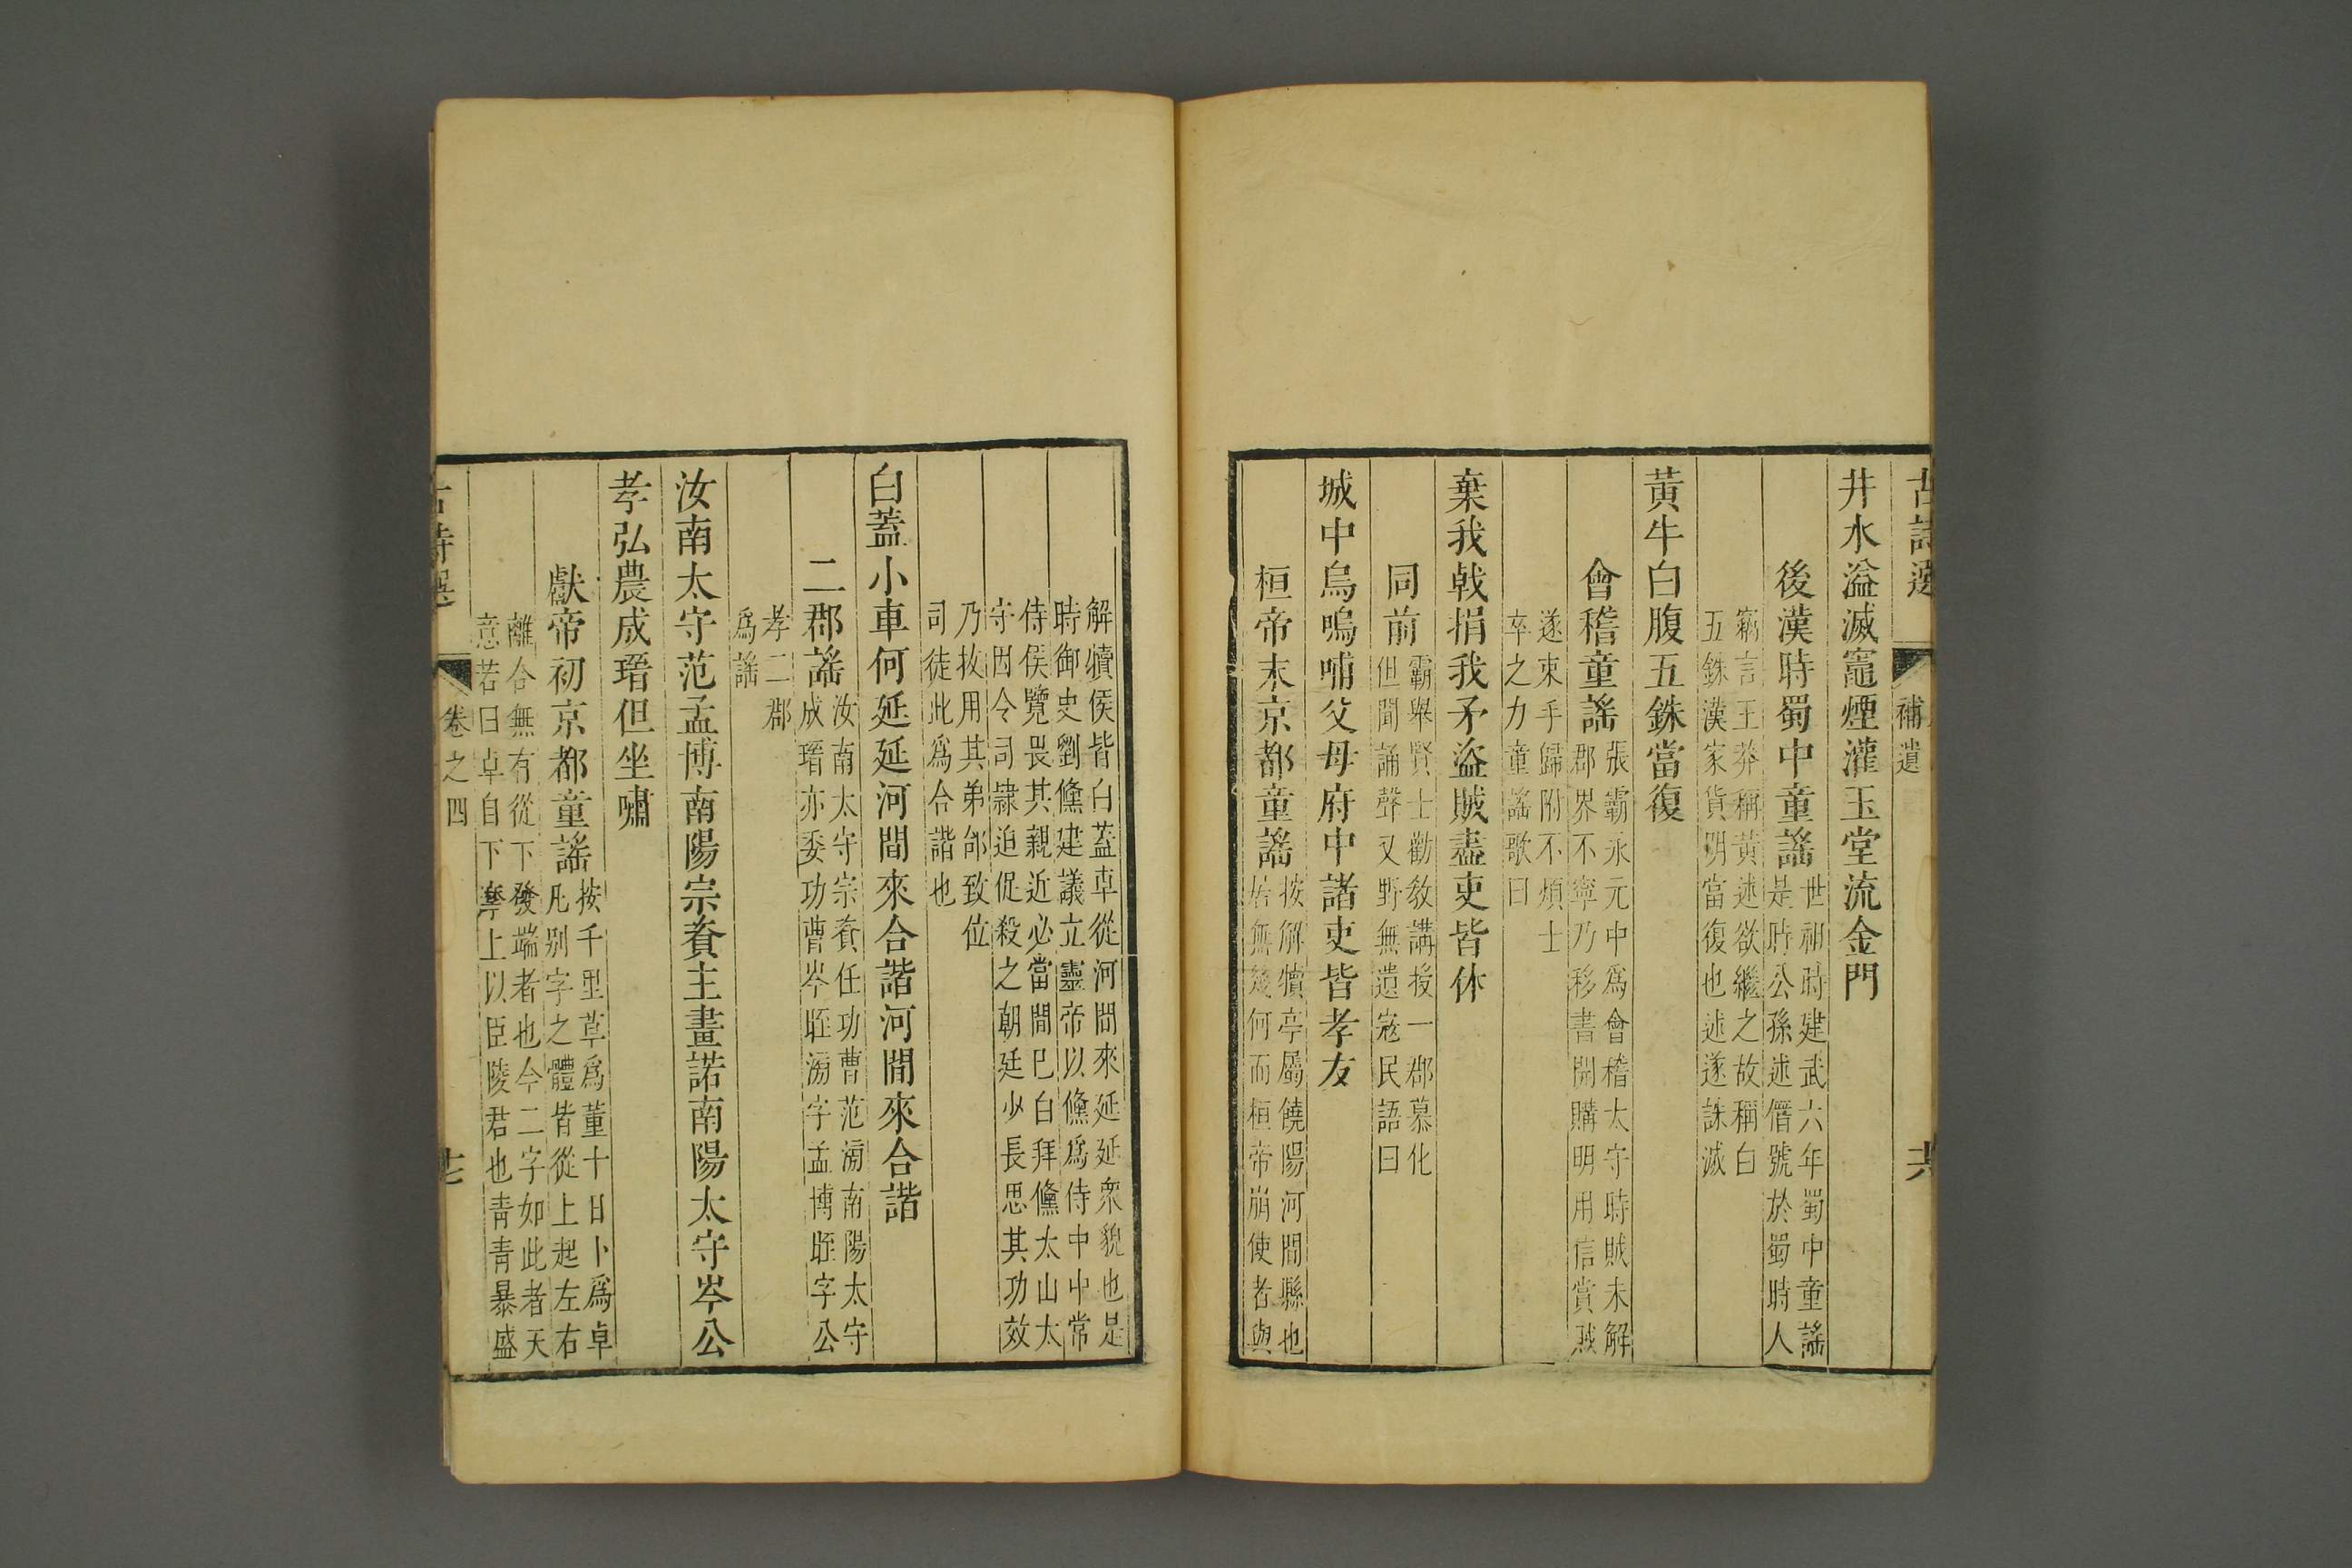 古詩選
補遺
井水溢滅竈煙灌玉堂流金門
後漢時蜀中童謠
世祖時建武六年蜀中童謠
是時公孫述僭號於蜀時人
竊言王莽稱黃述欲繼之故稱白
五銖漢家貨明當復也述遂誅滅
黃牛白腹五銖當復
會稽童謠
張霸永元中爲會稽太守時賊未解
郡界不寧乃移書開購明用信賞賊
遂束手歸附不煩士
卒之力童謠歌曰
棄我戟捐我矛盜賊盡吏皆休
同前
霸舉賢士勸教講授一郡慕化
但聞誦聲又野無遺寇民語曰
城中烏鳴哺父母府中諸吏皆孝友
桓帝末京都童謠
按解犢亭屬饒陽河間縣也
居無幾何而桓帝崩使者與
解犢侯皆白蓋車從河間來延延衆貌也是
時御史劉儵建議立靈帝以儵爲侍中中常
侍侯覽畏其親近必當間已白拜儵太山太
守因令司隷迫促殺之朝廷少長思其功效
乃拔用其弟郃致位
司徒此爲合諧也
白蓋小車何延延河間來合諧河間來合諧
二郡謠
汝南太守宗資任功曹范滂南陽太守
成瑨亦委功曹岑晊滂字孟博晊字公
孝二郡
爲謠
汝南太守范孟博南陽宗資主畫諾南陽太守岑公
孝弘農成瑨但坐嘯
獻帝初京都童謠
按千里草爲董十日卜爲卓
凡別字之體皆從上起左右
離合無有從下發端者也今二字如此者天
意若曰卓自下摩上以臣陵君也青青暴盛
古詩選
卷之四